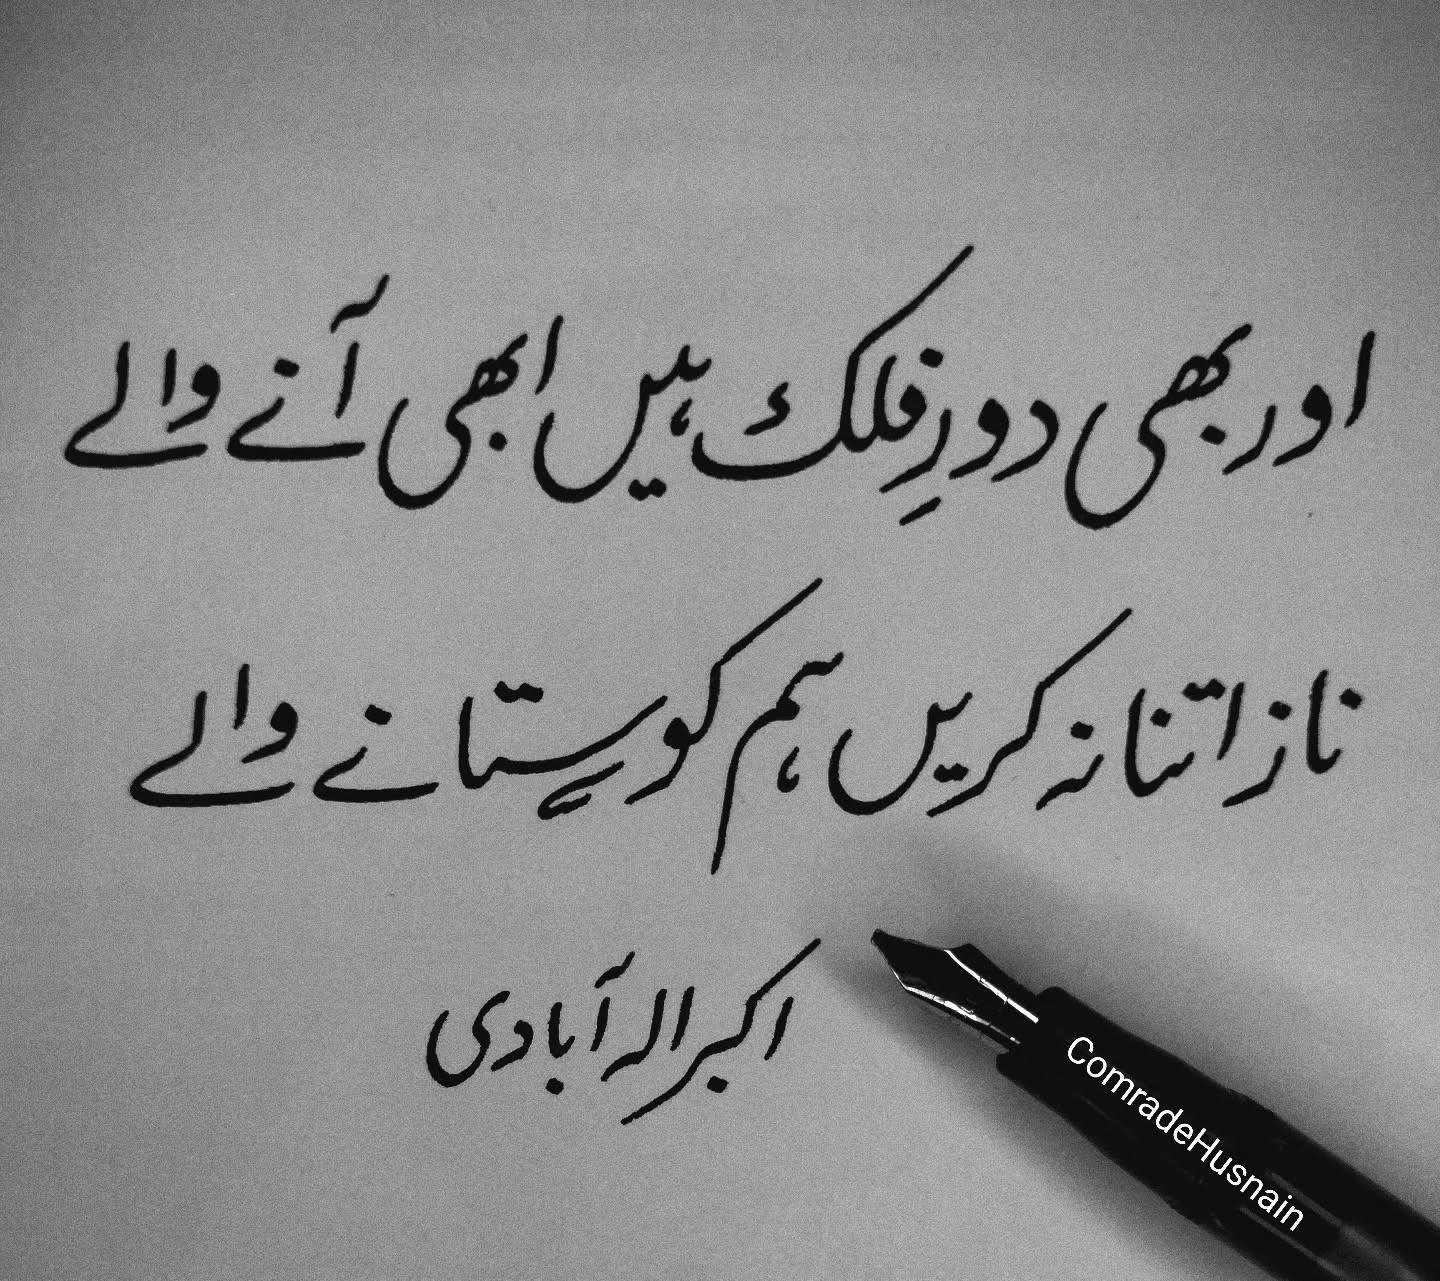 اور بھی دورِ فلک ہیں ابھی آنے والے
ناز اتنا نہ کریں ہم کو ستانے والے
اکبر الہ آبادی
ComradeHusnain